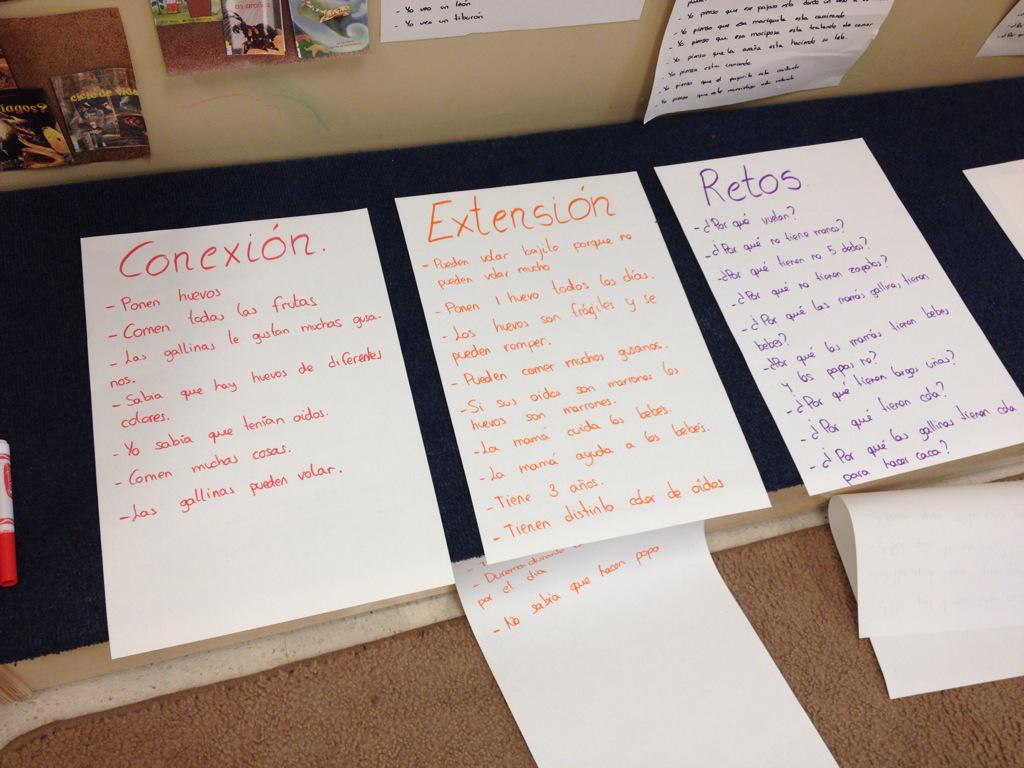 - Yo veo un león
- Yo veo un tiburón
- Yo pienso que esa mariquita esta caminando
- Yo pienso que esa mariposa esta tratando de comer
- Yo pienso que la araña esta haciendo su tela.
ciclo de vida
Conexión.
- Ponen huevos
- Comen todas las frutas
- Las gallinas le gustan muchas gusa-
nos.
- Sabia que hay huevos de diferentes
colores.
- Yo sabia que tenían oidos.
- Comen muchas cosas.
- Las gallinas pueden volar.
Extensión
- Pueden volar bajito porque no
pueden volar mucho
- Ponen 1 huevo todos los días.
- Los huevos son frágiles y se
pueden romper.
- Pueden comer muchos gusanos.
- Si sus oidos son marrones los
huevos son marrones.
- La mamá cuida los bebes.
- La mamá ayuda a los bebés.
- Tiene 3 años.
- Tienen distinto color de oídos
por el dia
- No sabia que hacen popo
Retos.
- ¿Por qué vuelan?
- ¿Por qué no tiene manos?
- ¿Por qué tienen no 5 dedos?
- ¿Por qué no tienen zapatos?
- ¿Por qué las mamás gallinas tienen
bebes?
- ¿Por qué las mamás tienen bebes
y los papas no?
- ¿Por qué tienen largas uñas?
- ¿Por qué tienen cola?
- ¿Por qué las gallinas tienen cola
para hacer caca?